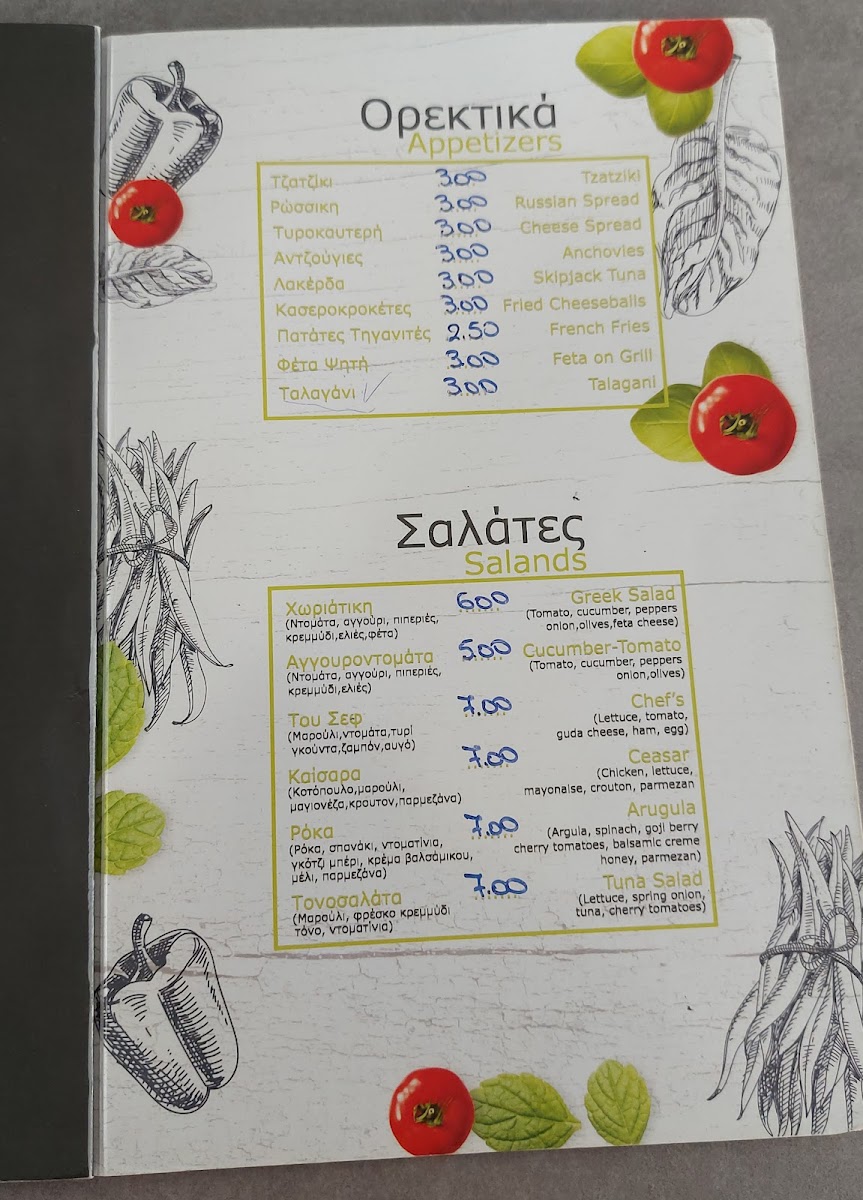 Ορεκτικά
Appetizers
Τζατζίκι 3.00 Tzatziki
Ρώσσικη 3.00 Russian Spread
Τυροκουτερή 3.00 Cheese Spread
Αντζούγιες 3.00 Anchovies
Λακέρδα 3.00 Skipjack Tuna
Κασεροκροκέτες 3.00 Fried Cheeseballs
Πατάτες Τηγανιτές 2.50 French Fries
Φέτα Ψητή 3.00 Feta on Grill
Ταλαγάνι 3.00 Talagani
Σαλάτες
Salands
Χωριάτικη 6.00 Greek Salad
(Ντομάτα, αγγούρι, πιπεριές, (Tomato, cucumber, peppers
κρεμμύδι,ελιές,φέτα) onion,olives,feta cheese)
Αγγουροντομάτα 5.00 Cucumber-Tomato
(Ντομάτα, αγγούρι, πιπεριές, (Tomato, cucumber, peppers
κρεμμύδι,ελιές) onion,olives)
Του Σεφ 7.00 Chef's
(Μαρούλι,ντομάτα,τυρί (Lettuce, tomato,
γκούντα,ζαμπόν,αυγό) guda cheese, ham, egg)
Καίσαρα 7.00 Ceasar
(Κοτόπουλο,μαρούλι, (Chicken, lettuce,
μαγιονέζα,κρουτον,παρμεζάνα) mayonaise, crouton, parmezan
Ρόκα 7.00 Arugula
(Ρόκα, σπανάκι, ντοματίνια, (Argula, spinach, goji berry
γκότζι μπέρι, κρέμα βαλσάμικου, cherry tomatoes, balsamic creme
μέλι, παρμεζάνα) honey, parmezan)
Τονοσαλάτα 7.00 Tuna Salad
(Μαρούλι, φρέσκο κρεμμύδι (Lettuce, spring onion,
τόνο, ντοματίνια) tuna, cherry tomatoes)